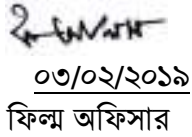 ০৩/০২/২০১৯
ফিল্ম অফিসার